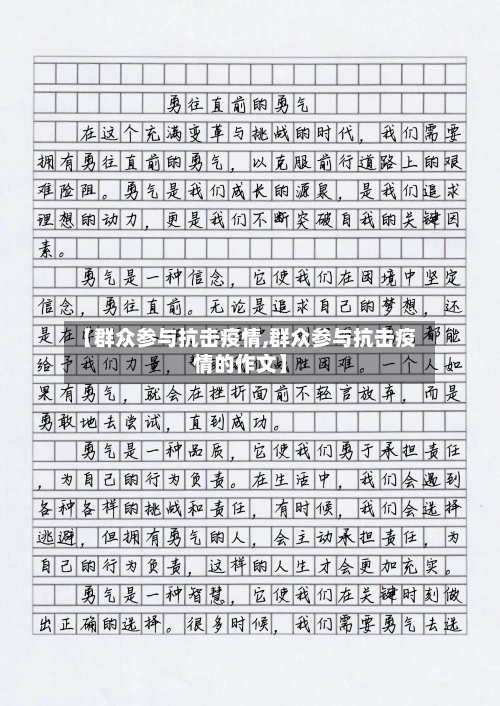 勇往直前的勇气
在这个充满变革与挑战的时代，我们需要
拥有勇往直前的勇气，以克服前行道路上的艰
难险阻。勇气是我们成长的源泉，是我们追求
理想的动力，更是我们不断突破自我的关键因
素。
勇气是一种信念，它使我们在困境中坚定
信念，勇往直前。无论是追求自己的梦想，还
是在
都能
【群众参与抗击疫情,群众参与抗击疫
情的作文】
给予我们力量，
胜困难。一个人如
果有勇气，就会在挫折面前不轻言放弃，而是
勇敢地去尝试，直到成功。
勇气是一种品质，它使我们勇于承担责任
，为自己的行为负责。在生活中，我们会遇到
各种各样的挑战和责任，有时候，我们会选择
逃避，但拥有勇气的人，会主动承担责任，为
自己的行为负责，这样的人生才会更加充实。
勇气是一种智慧，它使我们在关键时刻做
出正确的选择。很多时候，我们需要勇气去选